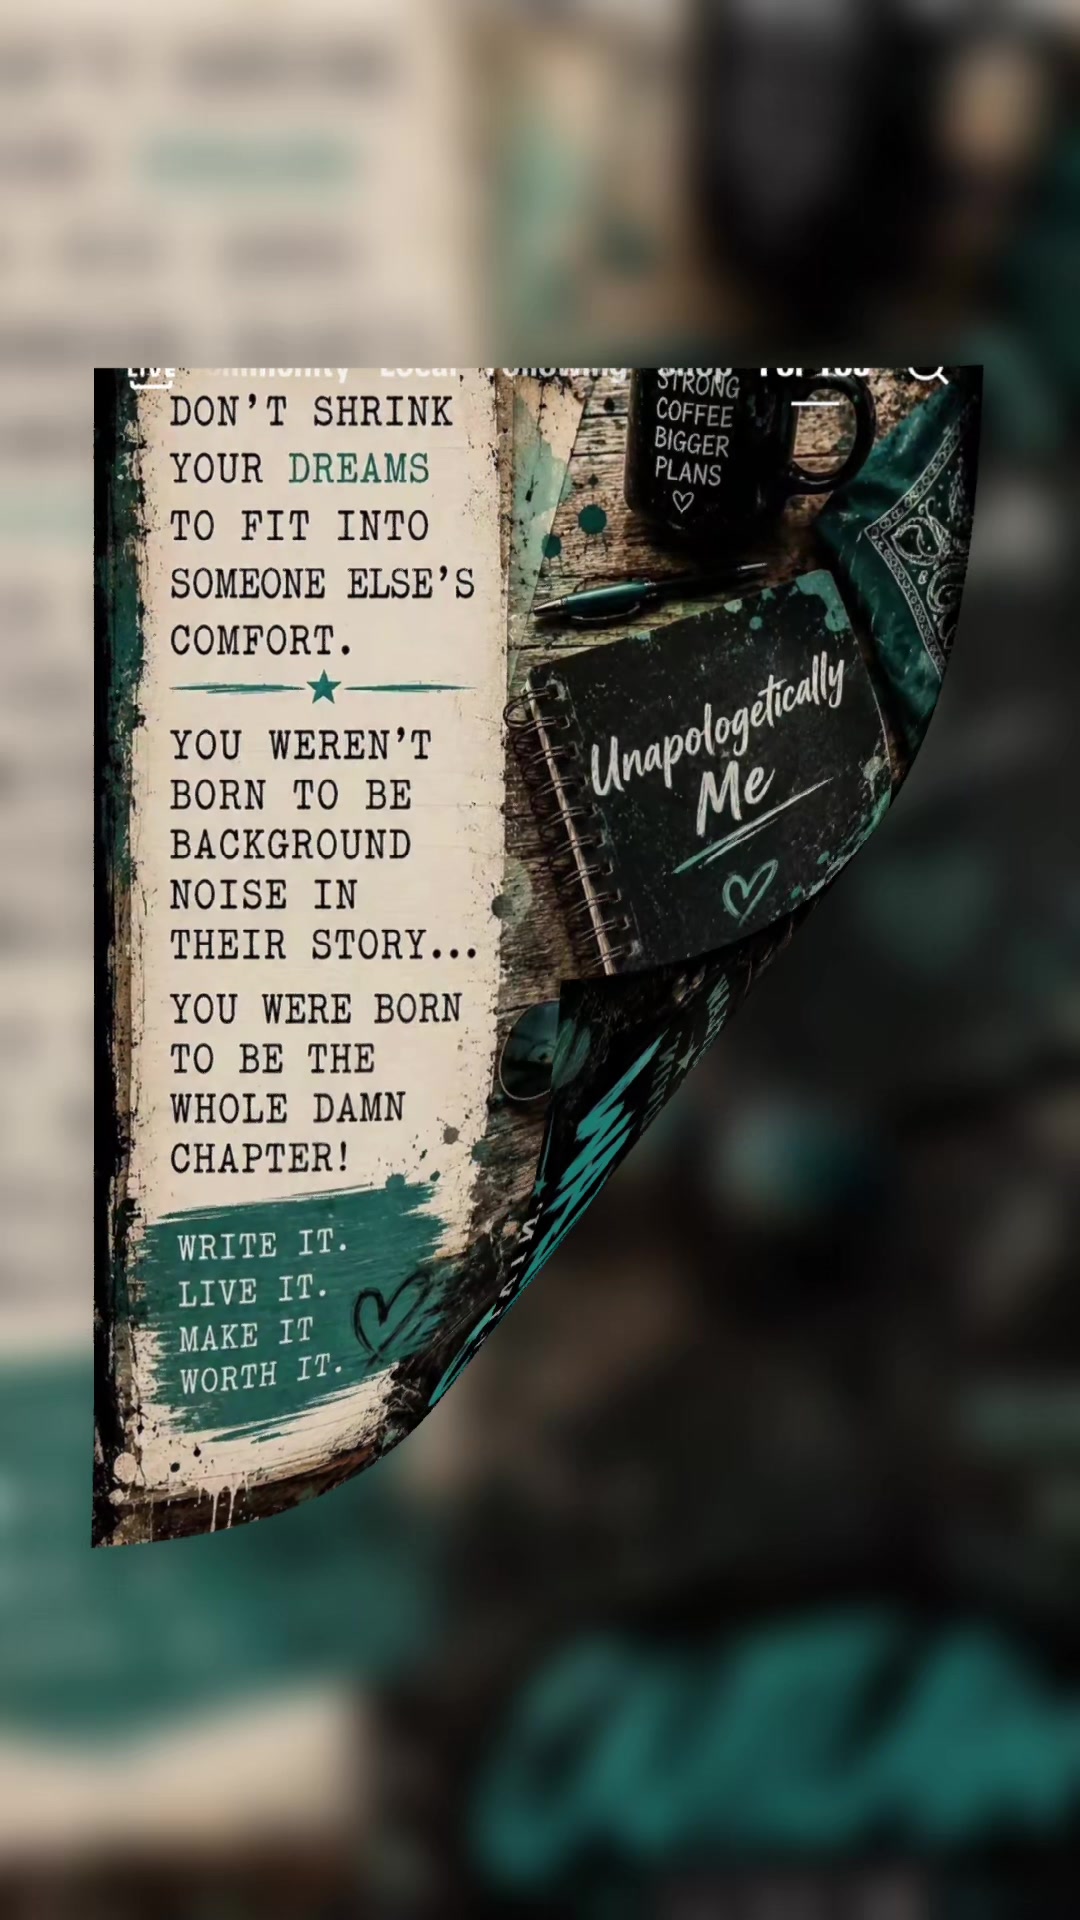 LIVE
Community Local Following Shop For You
DON'T SHRINK
YOUR DREAMS
TO FIT INTO
SOMEONE ELSE'S
COMFORT.
YOU WEREN'T
BORN TO BE
BACKGROUND
NOISE IN
THEIR STORY...
YOU WERE BORN
TO BE THE
WHOLE DAMN
CHAPTER!
WRITE IT.
LIVE IT.
MAKE IT
WORTH IT.
STRONG
COFFEE
BIGGER
PLANS
Unapologetically
Me